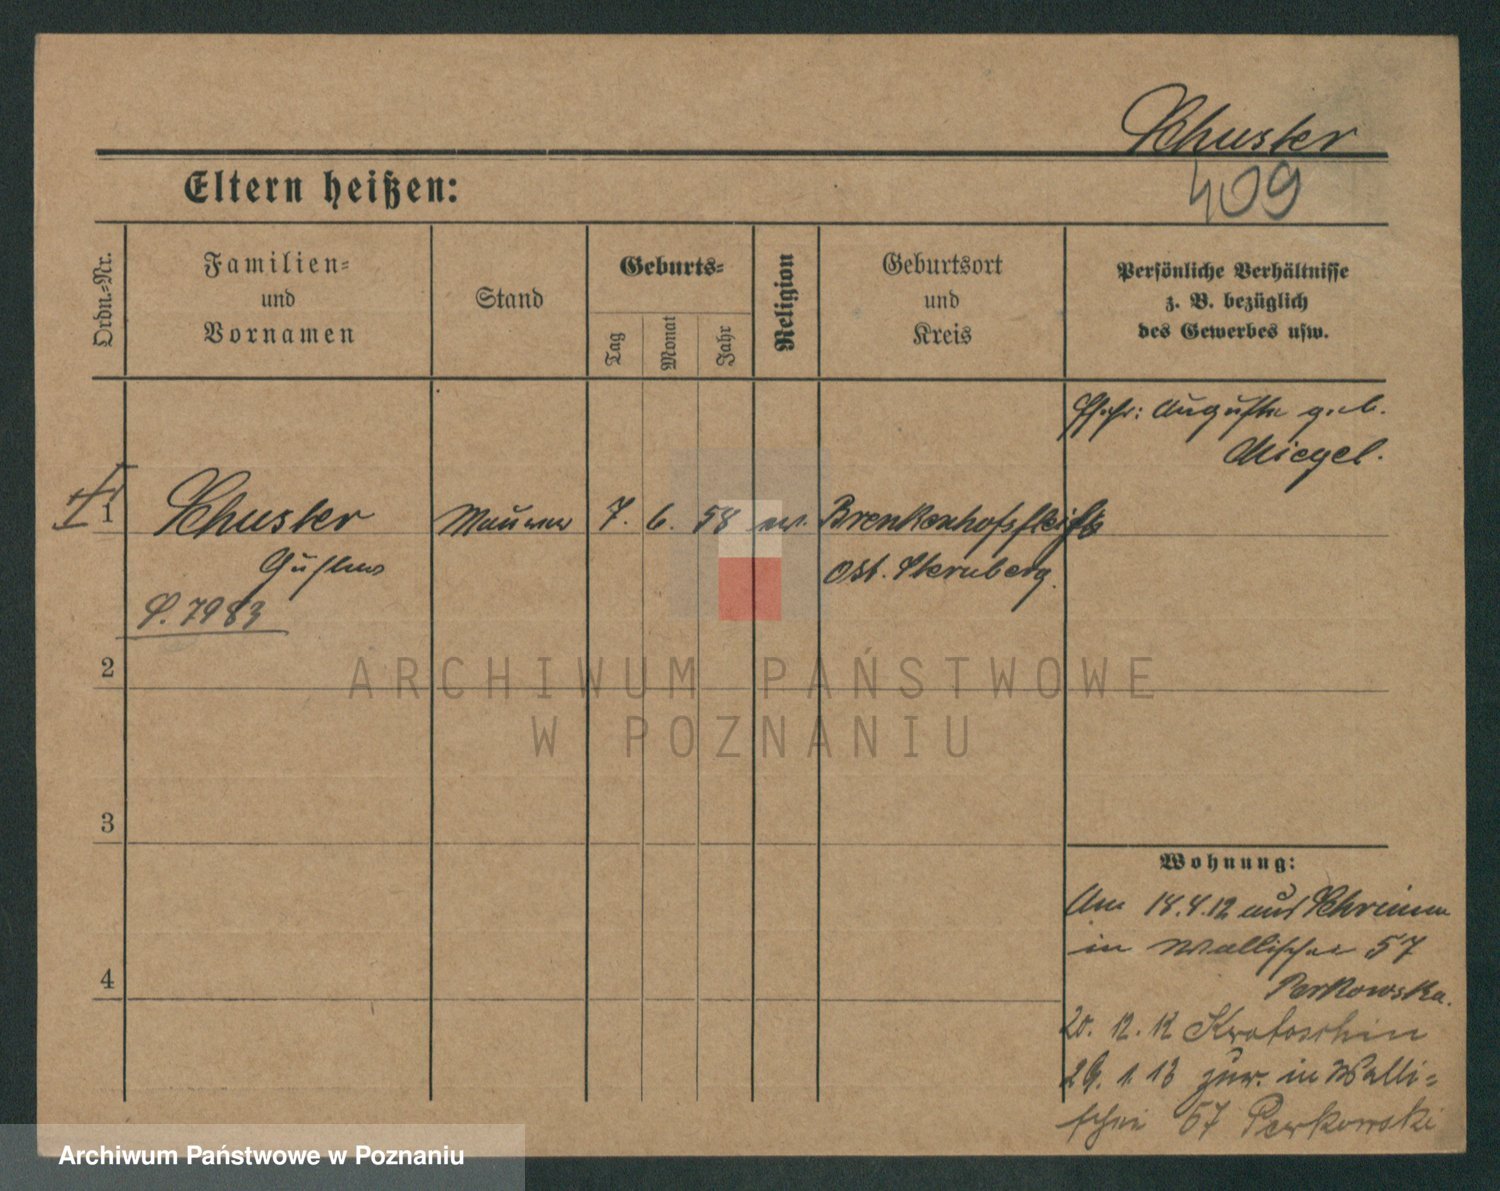 Schuster
409
Eltern heißen:
Ordn.-Nr.
Familien-
und
Vornamen
Stand
Geburts-
Tag
Monat
Jahr
Religion
Geburtsort
und
Kreis
Persönliche Verhältnisse
z. B. bezüglich
des Gewerbes usw.
Auguste geb.
Miegel.
1 Schuster Maurer 7. 6. 58 ev. Brenkenhofsfleiß
Gustav Ost. Sternberg.
S. 7983
2
3
4
Wohnung:
Am 18.4.12 aus Schrimm
in Wallischei 57
Perkowska.
20. 12. 12 Krotoschin
29. 1. 13 zur. in Walli-
schei 57 Perkowski
ARCHIWUM PAŃSTWOWE
W POZNANIU
Archiwum Państwowe w Poznaniu